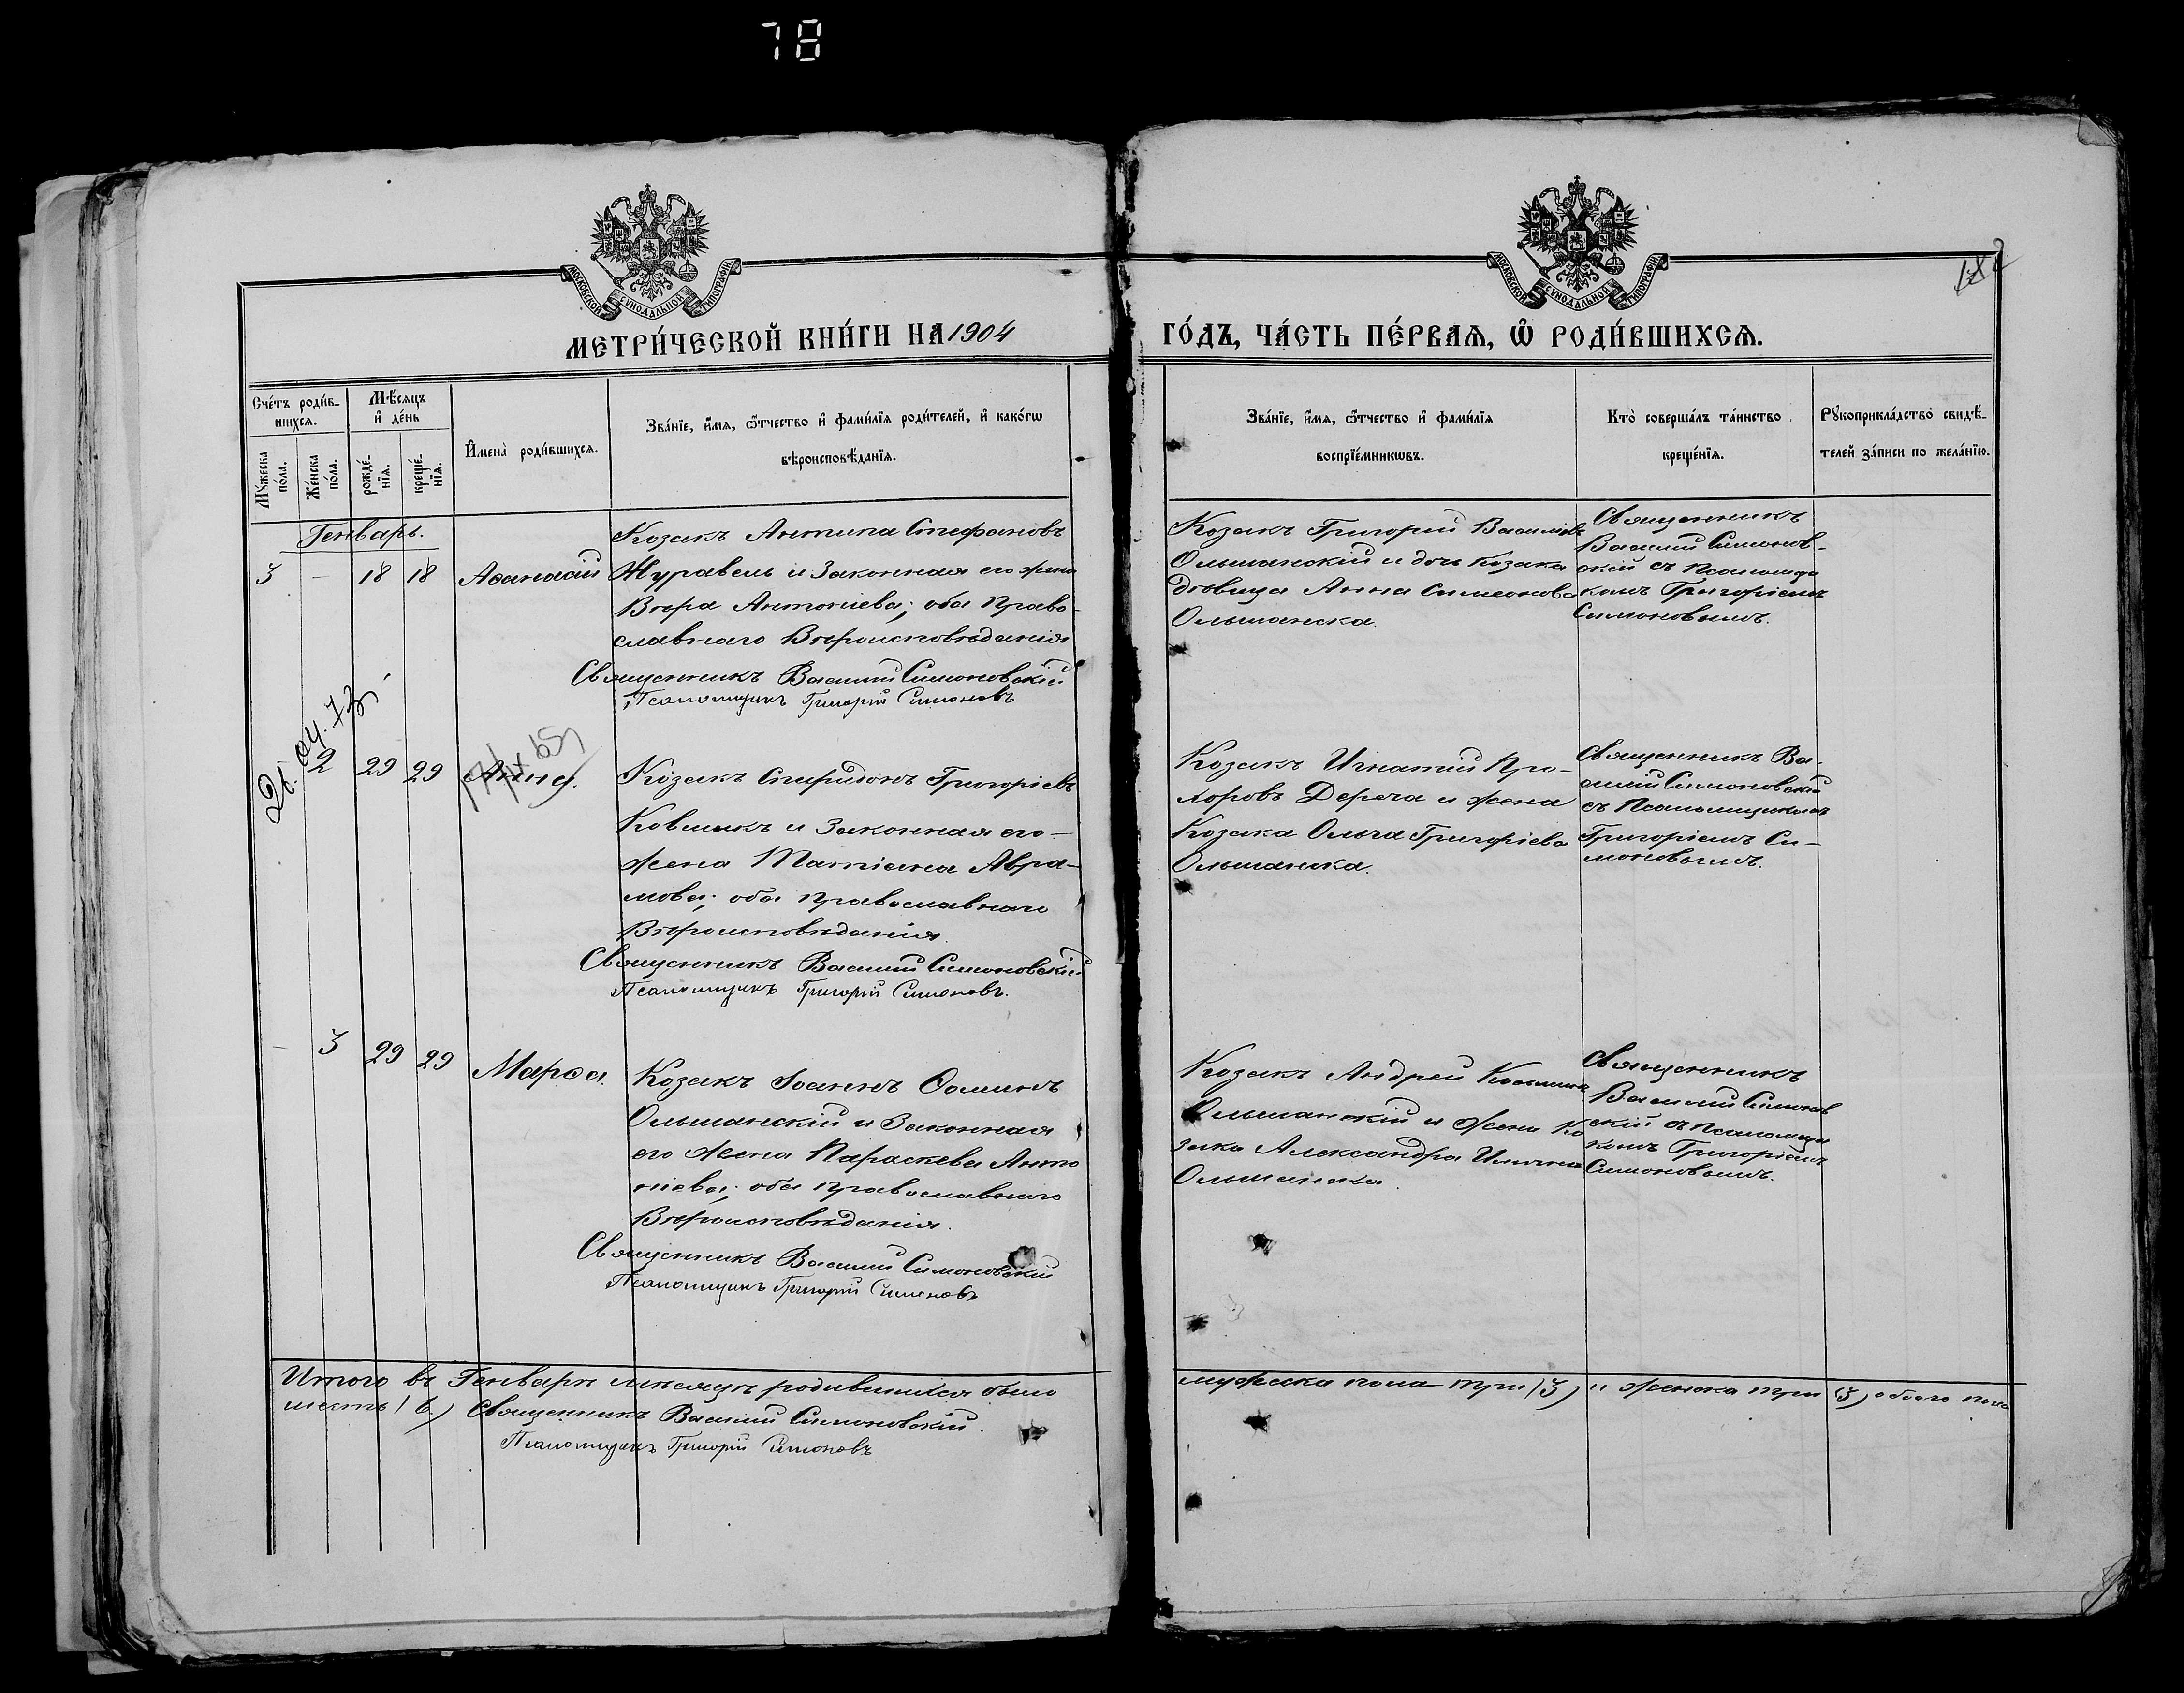 78
МОСКОВСКОЙ СѴНОДАЛЬНОЙ ТИПОГРАФІИ
МОСКОВСКОЙ СѴНОДАЛЬНОЙ ТИПОГРАФІИ
МЕТРИ́ЧЕСКОЙ КНИ́ГИ НА 1904
ГО́ДЪ, ЧА́СТЬ ПЕ́РВАѦ, Ѡ҆ РОДИ́ВШИХСѦ.
Сче́тъ роди́в-
шихсѧ.
Мꙋ́жеска
по́ла.
Же́нска
по́ла.
Мѣ́сѧцъ
и҆ де́нь
рожде́-
нїѧ.
креще́-
нїѧ.
И҆мена̀ роди́вшихсѧ.
Зва́нїе, и҆́мѧ, ѻ҆́тчество и҆ фами́лїѧ роди́телей, и҆ како́гѡ
вѣроисповѣ́данїѧ.
Зва́нїе, и҆́мѧ, ѻ҆́тчество и҆ фами́лїѧ
воспрїе́мникѡвъ.
Кто̀ соверша́лъ та́инство
креще́нїѧ.
Рꙋкоприкла́дство свидѣ́-
телей за́писи по жела́нїю.
Генварь.
3 — 18 18 Аѳанасій
Козакъ Антипа Стефановъ
Журавель и законная его жена
Вѣра Антоніева; оба право-
славнаго Вѣроисповѣданія
Священникъ Василій Симоновскій
Псаломщикъ Григорій Симоновъ
Козакъ Григорій Васильевъ
Ольшанскій и дочь козака
дѣвица Анна Симеонова
Ольшанска.
Священникъ
Василій Симонов-
скій съ Псаломщи
комъ Григоріемъ
Симоновымъ.
2 29 29 Анна.
Козакъ Спиридонъ Григоріевъ
Ковшикъ и Законная его-
жена Татіана Авра-
мова; оба православнаго
Вѣроисповѣданія.
Священникъ Василій Симоновскій
Псаломщикъ Григорій Симоновъ.
Козакъ Игнатій Про-
хоровъ Дереча и жена
Козака Ольга Григоріева
Ольшанска.
Священникъ Ва-
силій Симоновскій
съ Псаломщикомъ
Григоріемъ Си-
моновымъ.
— 3 29 29 Марѳа.
Козакъ Іоаннъ Ѳоминъ
Ольшанскій и Законная
его жена Параскева Анто
ніева; оба православнаго
Вѣроисповѣданія.
Священникъ Василій Симоновскій
Псаломщикъ Григорій Симоновъ
Козакъ Андрей
Ольшанскій и жена ко
зака Александра Ильина
Ольшанска.
Священникъ
Василій Симонов
скій съ Псаломщи
комъ Григоріемъ
Симоновымъ.
Итого въ Генварѣ мѣсяцѣ родившихся было
мужеска пола три (3) и женска три (3) обоего пола
шесть (6) Священникъ Василій Симоновскій.
Псаломщикъ Григорій Симоновъ